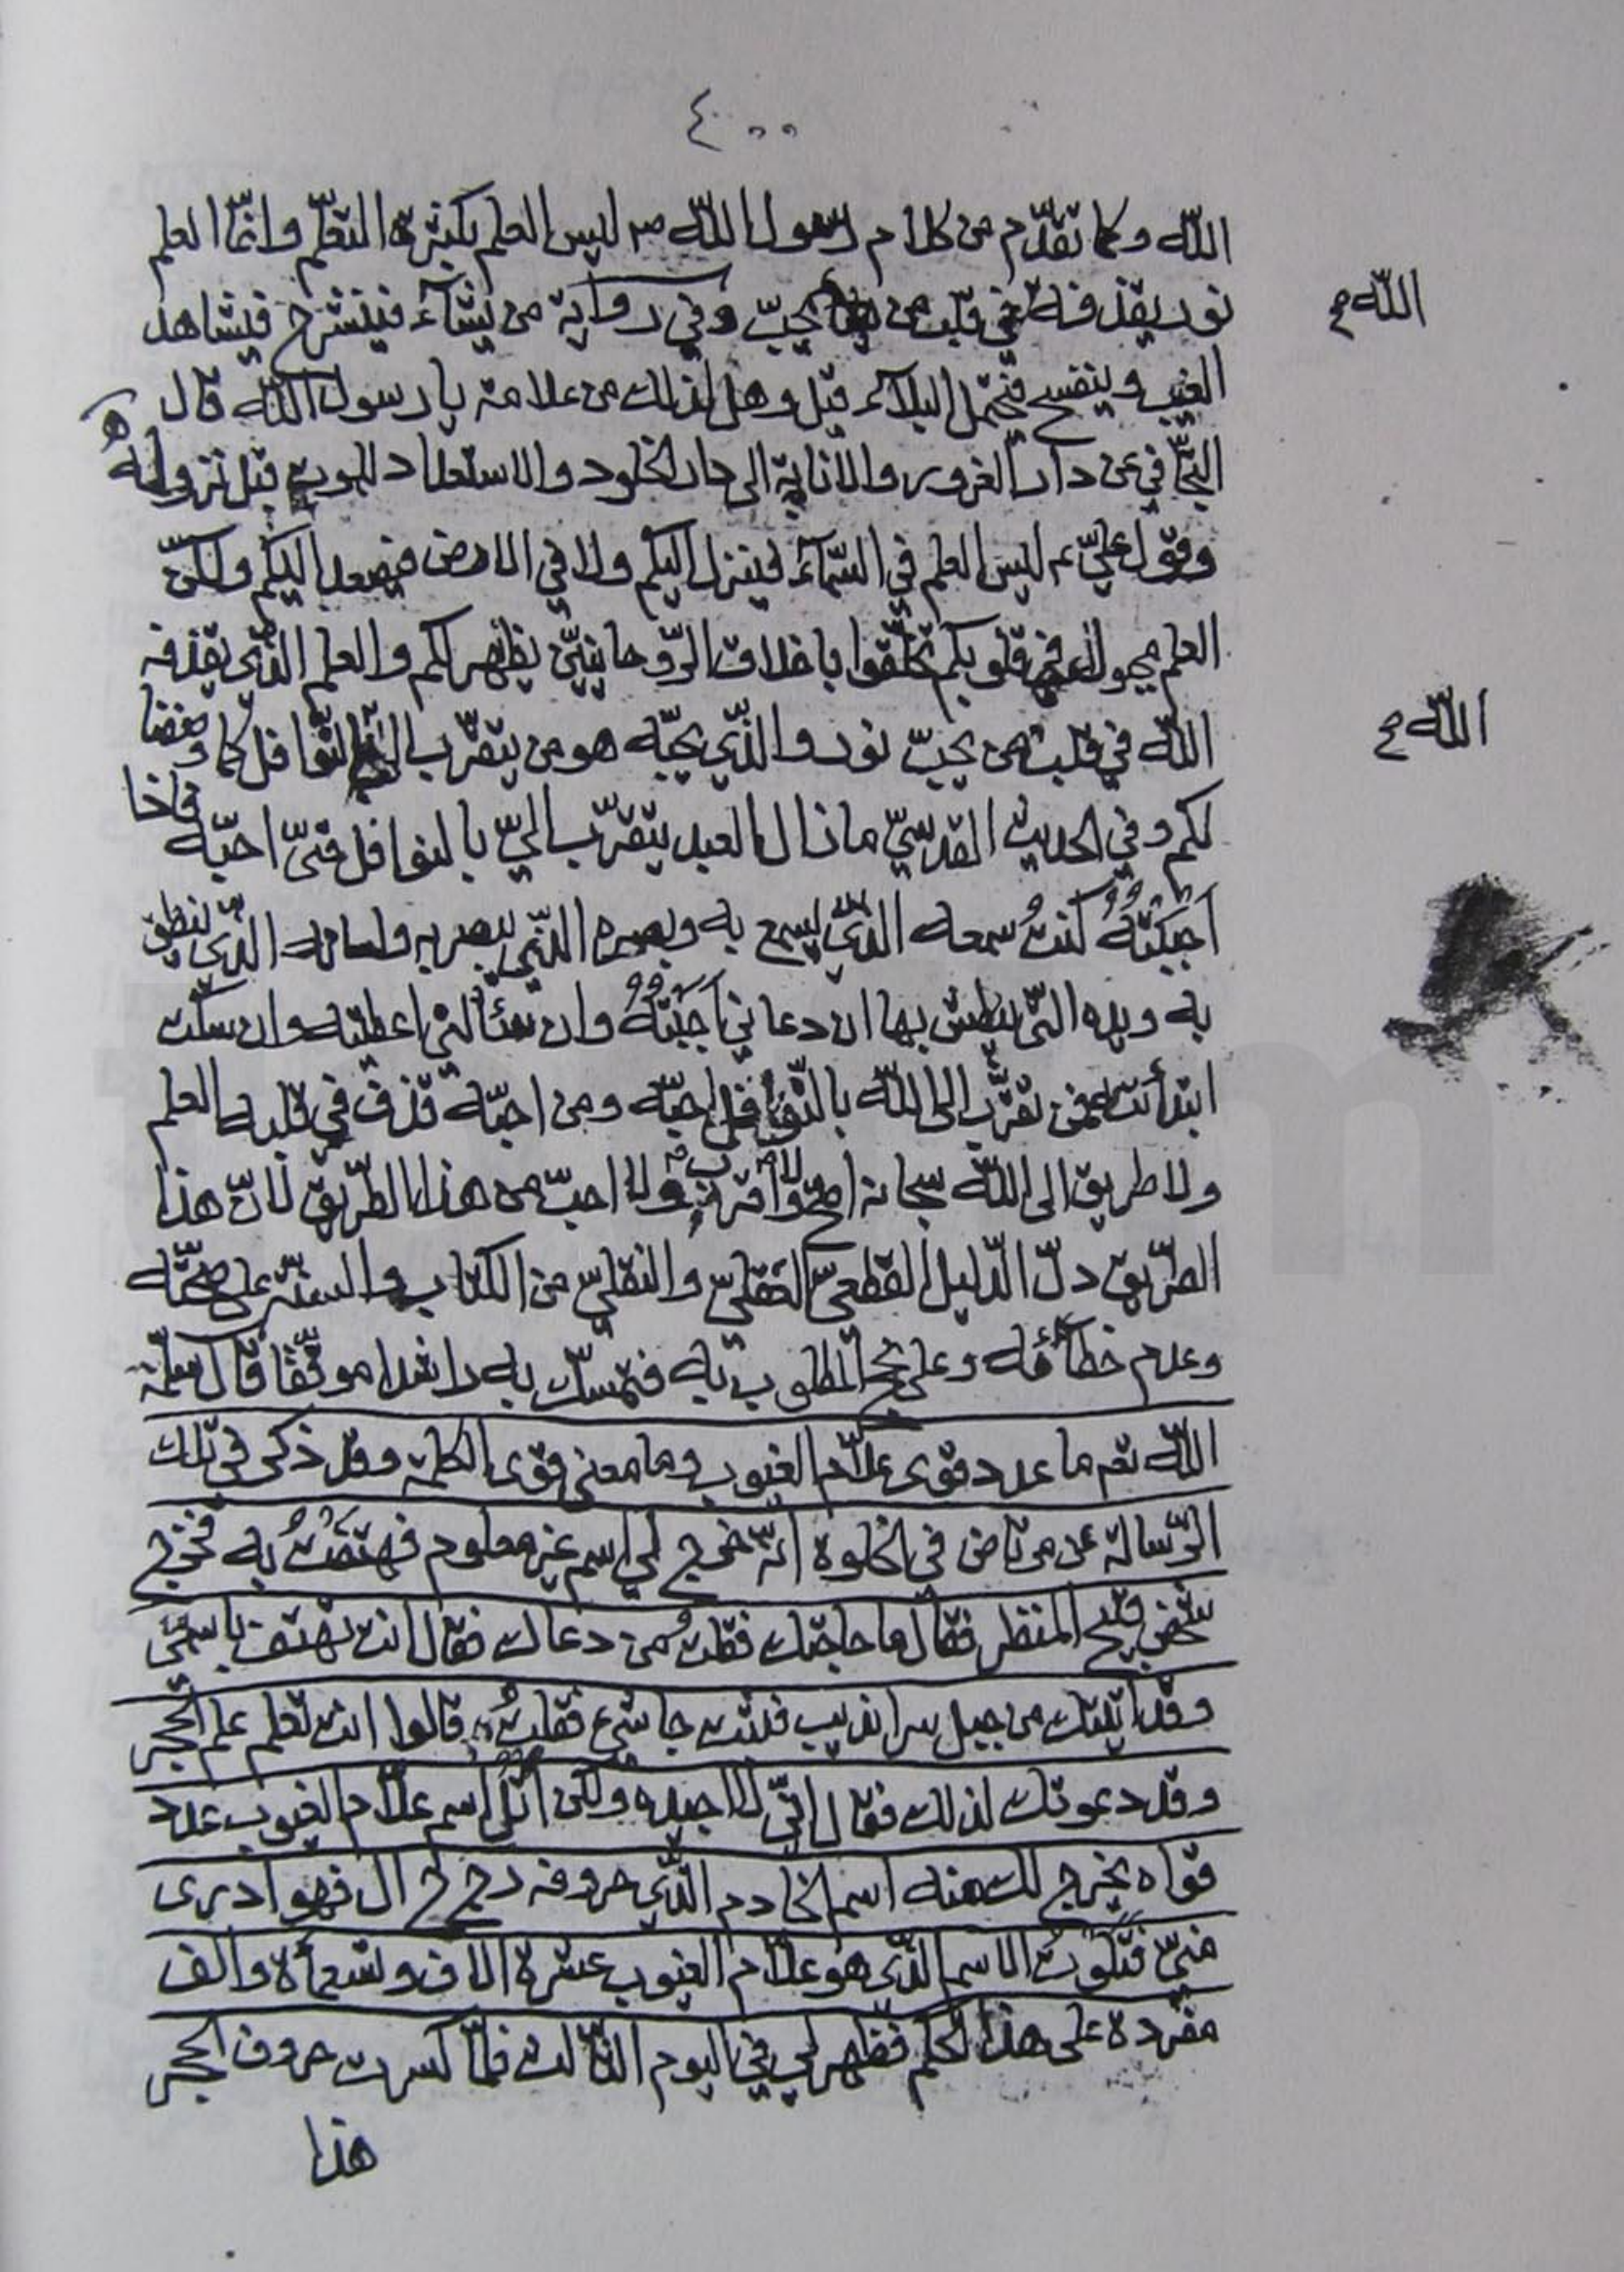 ٤٠٠
الله وكما تقدّم من كلام رسول الله ص ليس العلم بكثرة التعلّم وانّما العلم
نور يقذفه في قلب من يحبّ وفي رواية من يشآء فينشرح فيشاهد
الله ح
الغيب وينفسح فيحتمل البلآء قيل وهل لذلك من علامة يا رسول الله قال
التجافي عن دار الغرور والانابة الى دار الخلود والاستعداد للموت قبل نزوله
وقول عليّ ع ليس العلم في السّمآء فينزل اليكم ولا في الارض فيصعد اليكم ولكنّ
العلم مجبول في قلوبكم تخلّقوا باخلاق الرّوحانيّين يظهر لكم والعلم الّذي يقذفه
الله في قلب من يحبّ نور والّذي يحبّه هو من يتقرّب بالنّوافل كما وصفنا
الله ح
لكم وفي الحديث القدسيّ ما زال العبد يتقرّب اليّ بالنوافل حتّى احبّه فاذا
اَحْبَبْتُهُ كنتُ سمعه الّذي يسمع به وبصره الّذي يبصر به ولسانه الّذي ينطق
به ويده الّتي يبطش بها ان دعاني اَجَبْتُهُ وان سئالني اعطيته وان سكت
ابتدأته فمن تقرّب الى الله بالنّوافل احبّه ومن احبّه قذف في قلبه العلم
ولا طريق الى الله سبحانه اصحّ ولا اقرب ولا احبّ من هذا الطّريق لانّ هذا
الطّريق دلّ الدّليل القطعيّ العقليّ والنقليّ من الكتاب والسنّة على صحّته
وعدم خطأئه وعلى نجح المطلوب به فتمسّك به راشدا موفّقا قال سلّمه
الله تعم ما عدد قوى علّام الغيوب وما معنى قوى الكلمة وقد ذكر في تلك
الرّسالة عن مرتاض في الخلوة انّه خرج لي اسم غير معلوم فهتفتُ به فخرج
شخص قبيح المنظر فقال ما حاجتك فقلتُ من دعاك فقال انت تهتف باسمي
وقد اتيتك من جبل سرانديب فلست جاشع فقلتُ قالوا انت تعلم علم الحجر
وقد دعوتك لذلك فقال انّي لا اجيده ولكن اتل اسم علّام الغيوب عدد
قواه يخرج لك منه اسم الخادم الّذي حروفه د ح ر ج ال فهو ادرى
منّي فتلوتُ الاسم الّذي هو علّام الغيوب عشرة الاف وتسعمأة والف
مفردة على هذا الحكم فظهر لي في اليوم الثّالث فلمّا كسرت حروف الحجر
هذا